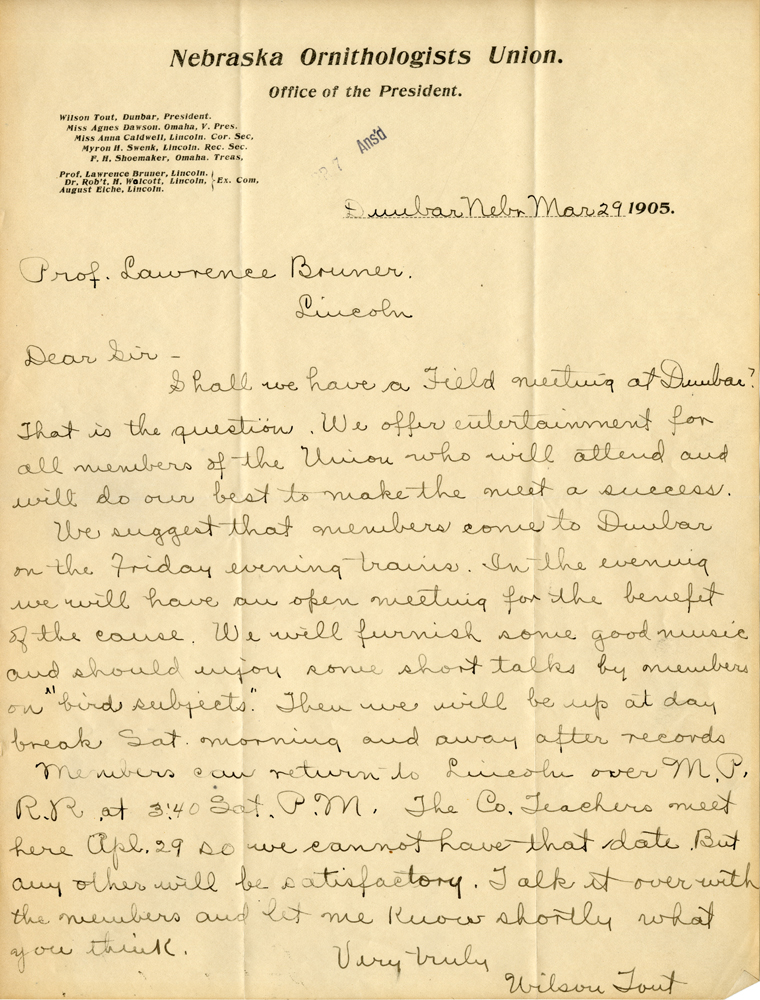 Nebraska Ornithologists Union.
Office of the President.
Wilson Tout, Dunbar, President.
Miss Agnes Dawson. Omaha, V. Pres.
Miss Anna Caldwell, Lincoln. Cor. Sec.
Myron H. Swenk, Lincoln. Rec. Sec.
F. H. Shoemaker, Omaha. Treas,
Prof. Lawrence Bruner, Lincoln.
Dr. Rob't, H. Walcott, Lincoln, Ex. Com,
August Eiche, Lincoln.
7 Ans'd
Dunbar Nebr Mar 29 1905.
Prof. Lawrence Bruner.
Lincoln
Dear Sir -
Shall we have a Field meeting at Dunbar?
That is the question. We offer entertainment for
all members of the Union who will attend and
will do our best to make the meet a success.
We suggest that members come to Dunbar
on the Friday evening trains. In the evening
we will have an open meeting for the benefit
of the cause. We will furnish some good music
and should enjoy some short talks by members
on "bird subjects". Then we will be up at day
break Sat. morning and away after records
Members can return to Lincoln over M.P.
R.R. at 3:40 Sat. P.M. The Co. Teachers meet
here Apl. 29 so we cannot have that date. But
any other will be satisfactory. Talk it over with
the members and let me know shortly what
you think.
Very truly
Wilson Tout